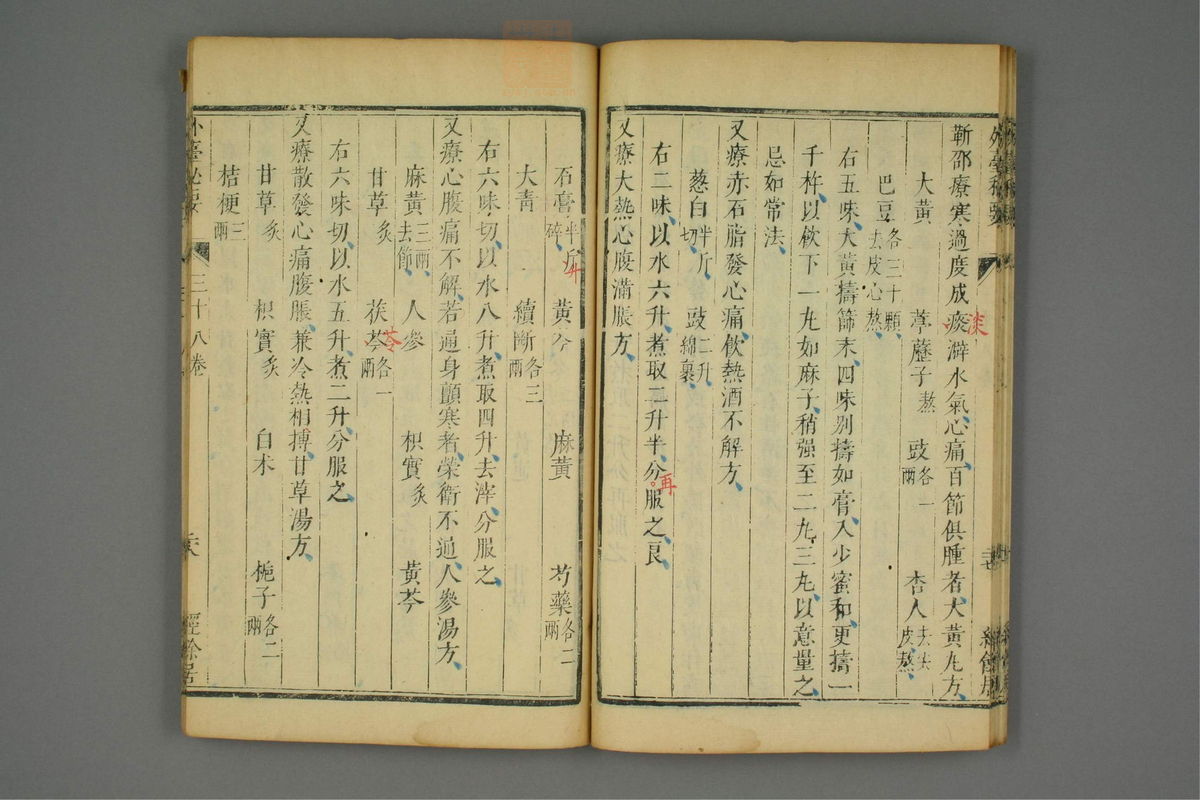 外臺秘要
靳邵療寒過度成痰澼水氣心痛百節俱腫者大黃丸方
淡
大黃 葶藶子熬 豉各一兩 杏人去尖皮熬
巴豆各三十顆去皮心熬
右五味大黃擣篩末四味別擣如膏入少蜜和更擣一
千杵以飲下一丸如麻子稍强至二丸三丸以意量之
忌如常法
又療赤石脂發心痛飲熱酒不解方
葱白半斤切 豉二升綿裹
右二味以水六升煮取二升半分服之良
再
又療大熱心腹滿脹方
石膏半斤碎 黃今 麻黃 芍藥各二兩
升
大靑 續斷各三兩
右六味切以水八升煮取四升去滓分服之
又療心腹痛不解若通身顫寒者榮衛不通人參湯方
麻黃三兩去節 人參 枳實炙 黃芩
甘草炙 茯苓各一兩
苓
右六味切以水五升煮二升分服之
又療散發心痛腹脹兼冷熱相搏甘草湯方
甘草炙 枳實炙 白术 梔子各二兩
桔梗三兩
外臺必要 三十八卷 二六 經餘居